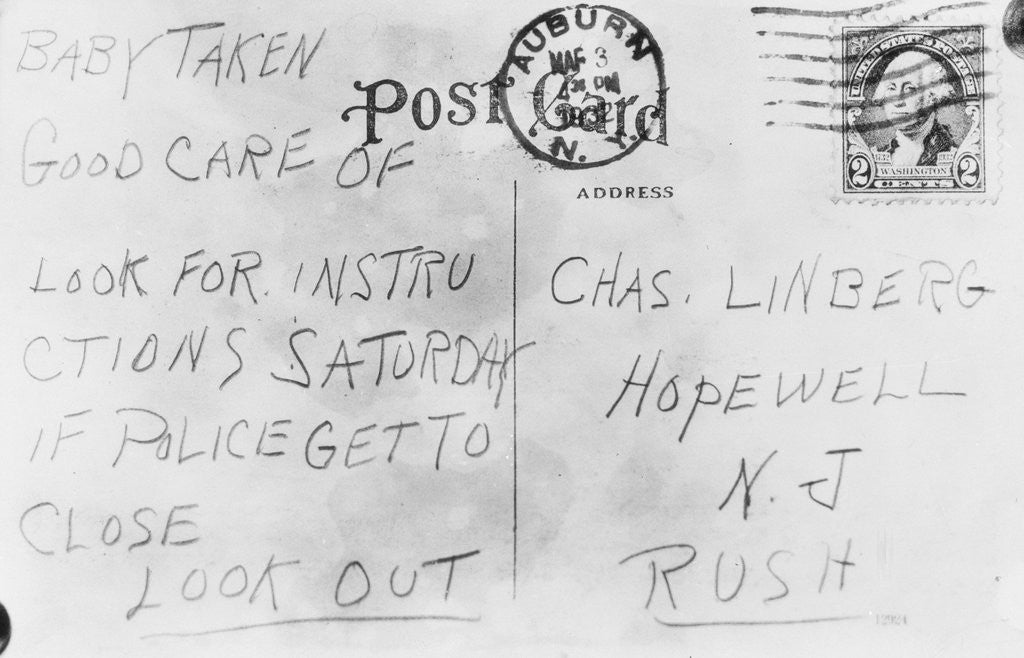 BABY TAKEN
GOOD CARE OF
LOOK FOR. INSTRU
CTIONS SATURDAY
IF POLICE GET TO
CLOSE
LOOK OUT
POST CARD
AUBURN
MAR 3
PM
1932
N. Y.
UNITED STATES POSTAGE
1732 1932
WASHINGTON
2 2
CENTS
ADDRESS
CHAS. LINBERG
HOPEWELL
N. J
RUSH
12924